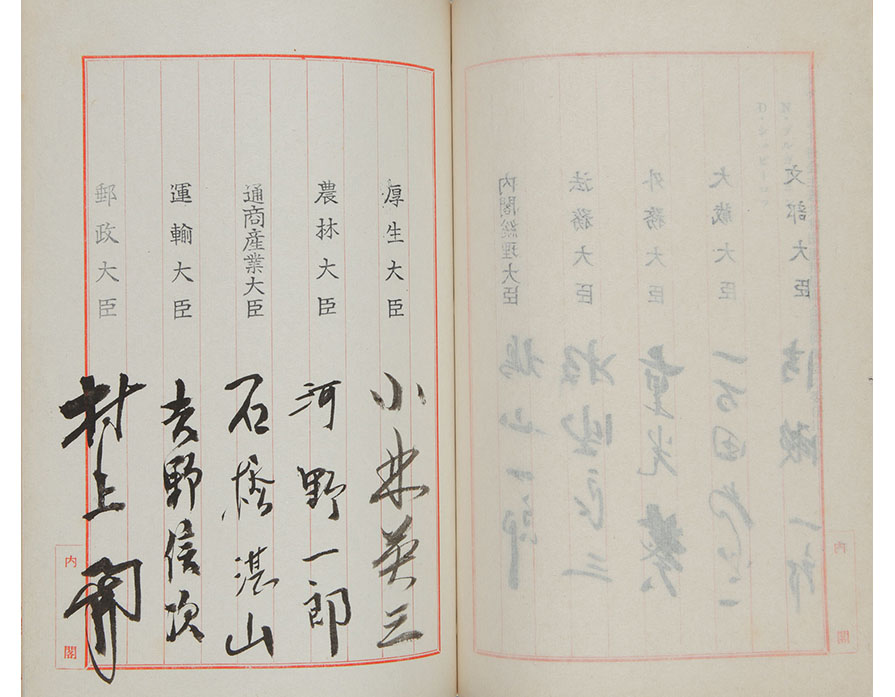 文部大臣 清瀬一郎
大蔵大臣 一万田尚登
外務大臣 重光葵
法務大臣 牧野良三
内閣総理大臣 鳩山一郎
内閣
厚生大臣 小林英三
農林大臣 河野一郎
通商産業大臣 石橋湛山
運輸大臣 吉野信次
郵政大臣 村上勇
内閣